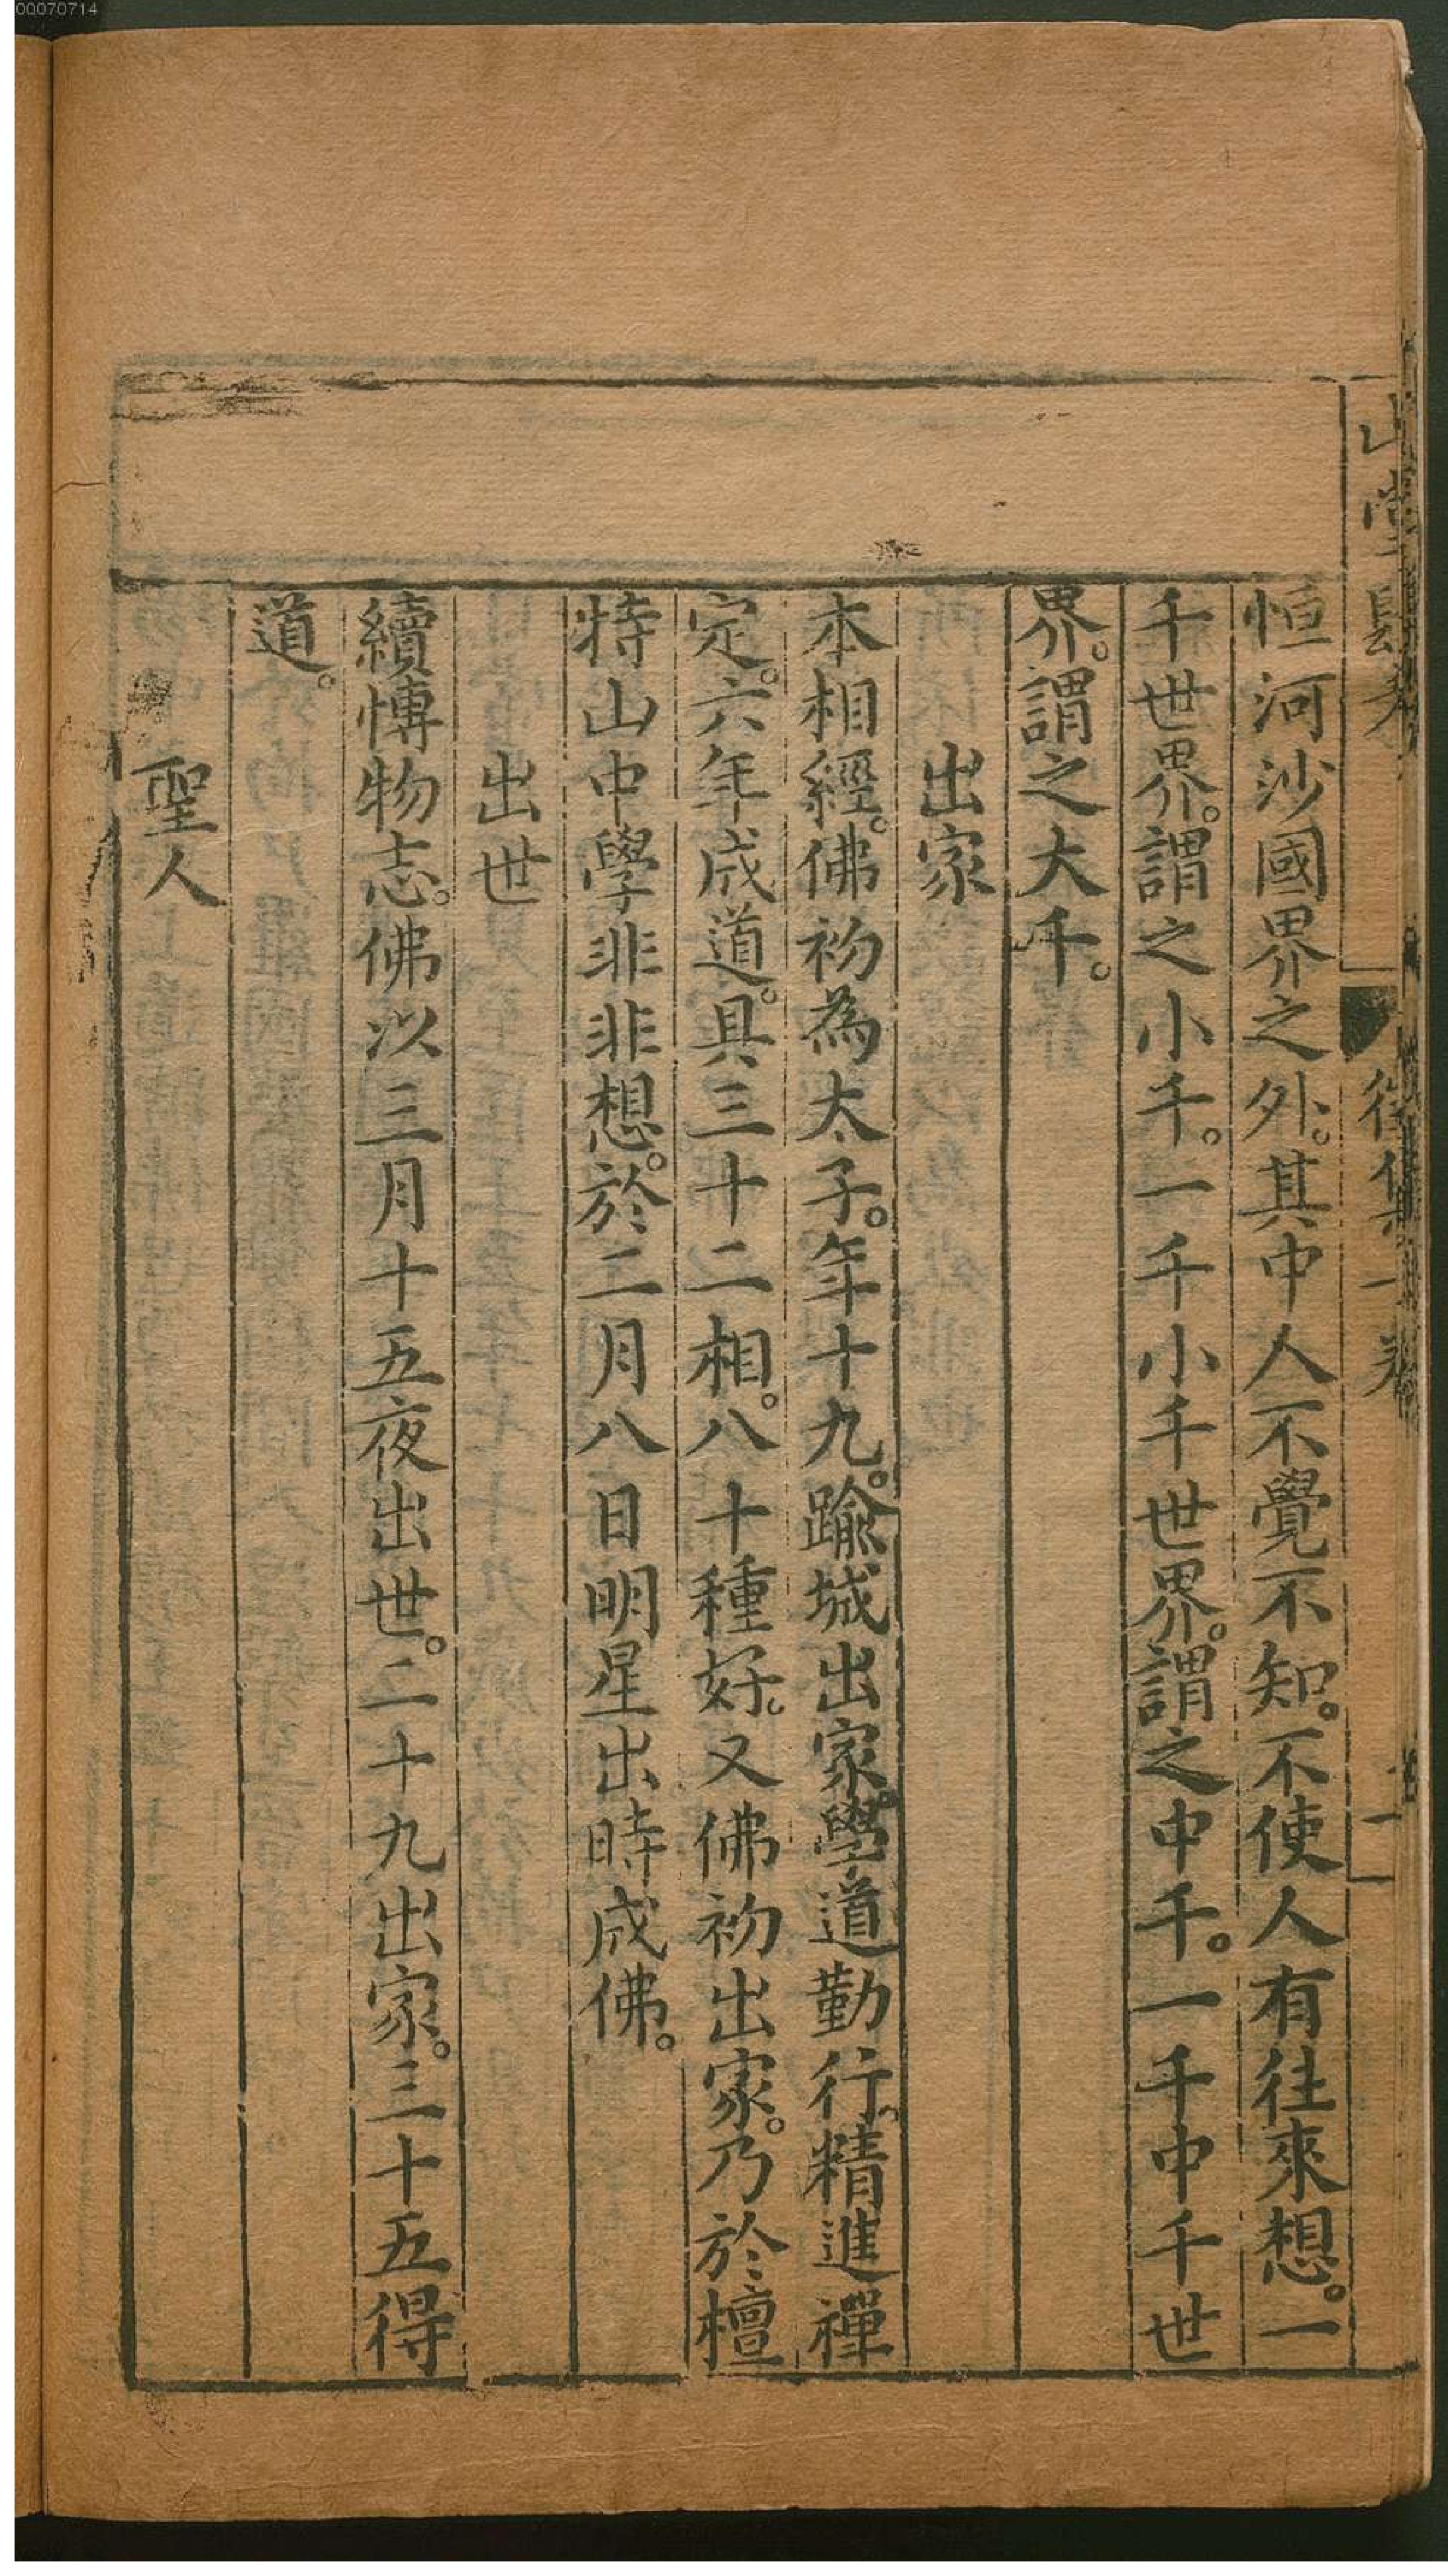 00070714
恒河沙國界之外。其中人不覺不知。不使人有往來想。一
千世界。謂之小千。一千小千世界。謂之中千。一千中千世
界。謂之大千。
出家
本相經。佛初為太子。年十九。踰城出家。學道勤行。精進禪
定。六年成道。具三十二相。八十種好。又佛初出家。乃於檀
特山中學非非想。於二月八日明星出時成佛。
出世
續愽物志。佛以三月十五夜出世。二十九出家。三十五得
道。
聖人